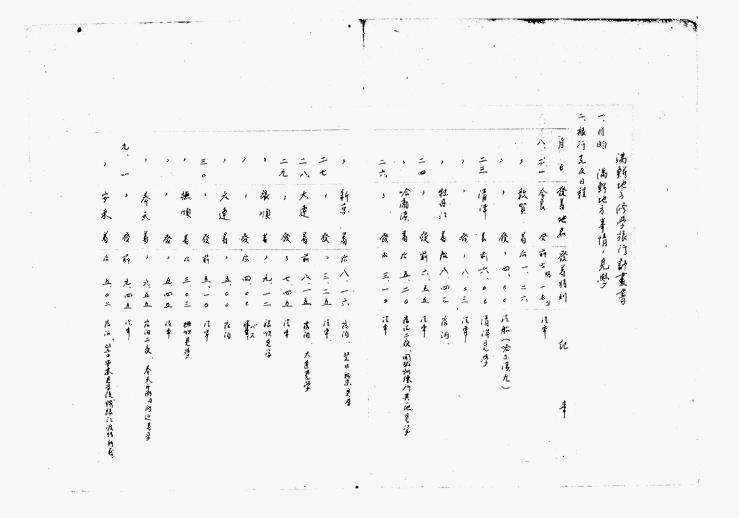 滿鮮地方修學旅行計畫書
一、目的 滿鮮地方事情ノ見學
二、旅行先及日程
月日 發着地名 發着時刻 記事
八、二一 奈良 發前七、一五 汽車
〃 敦賀 着后一、二六
〃 〃 發〃 四、〇〇 汽船（哈爾濱丸）
二三 清津 着前六、〇〇 清津見學
〃 〃 發〃 八、〇三 汽車
〃 牡丹江 着后八、四 宿泊、
二四 〃 發前六、五五 汽車
〃 哈爾濱 着后五、二〇 宿泊二夜、
二六 〃 發 三、一〇 汽車
〃 新京 着后八、一六 宿泊 翌日新京見學
二七 〃 發〃 三、二五 汽車
二八 大連 着前八、一五 宿泊 大連見學
二九 〃 發〃 七、四五 汽車
〃 旅順 着〃 九、一二 旅順見學
〃 〃 發后四、〇〇 バス
〃 大連 着〃 五、〇〇 宿泊
三〇 〃 發前五、一〇 汽車
〃 撫順 着后三、〇三 撫順見學
〃 〃 發〃 五、四五 汽車
〃 奉天 着〃 六、五五 宿泊二夜、奉天市内及附近見學
九、一 〃 發前九、四五 汽車
〃 安東 着后五、〇二 宿泊、翌日安東見學後